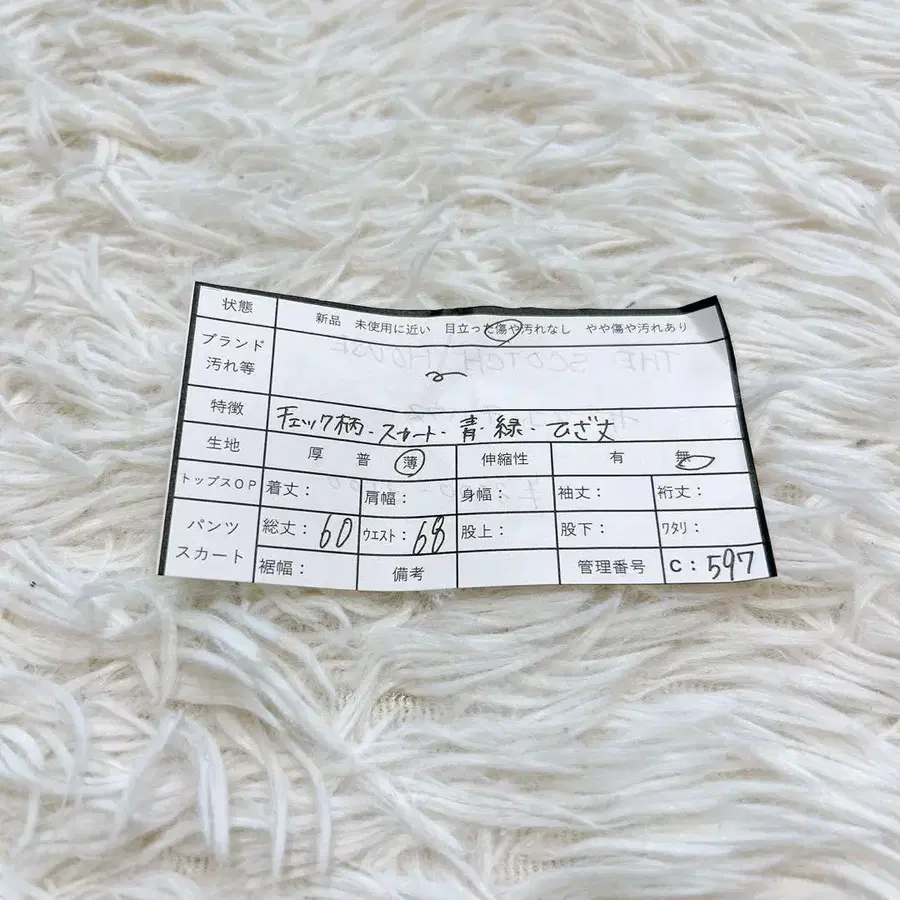 状態 新品 未使用に近い 目立った傷や汚れなし やや傷や汚れあり
ブランド
汚れ等
特徴 チェック柄・スカート・青・緑・ひざ丈
生地 厚 普 薄 伸縮性 有 無
トップスOP 着丈: 肩幅: 身幅: 袖丈: 裄丈:
パンツ
スカート
総丈:60 ウエスト:68 股上: 股下: ワタリ:
裾幅: 備考 管理番号 C:597
THE SCOTCH HOUSE